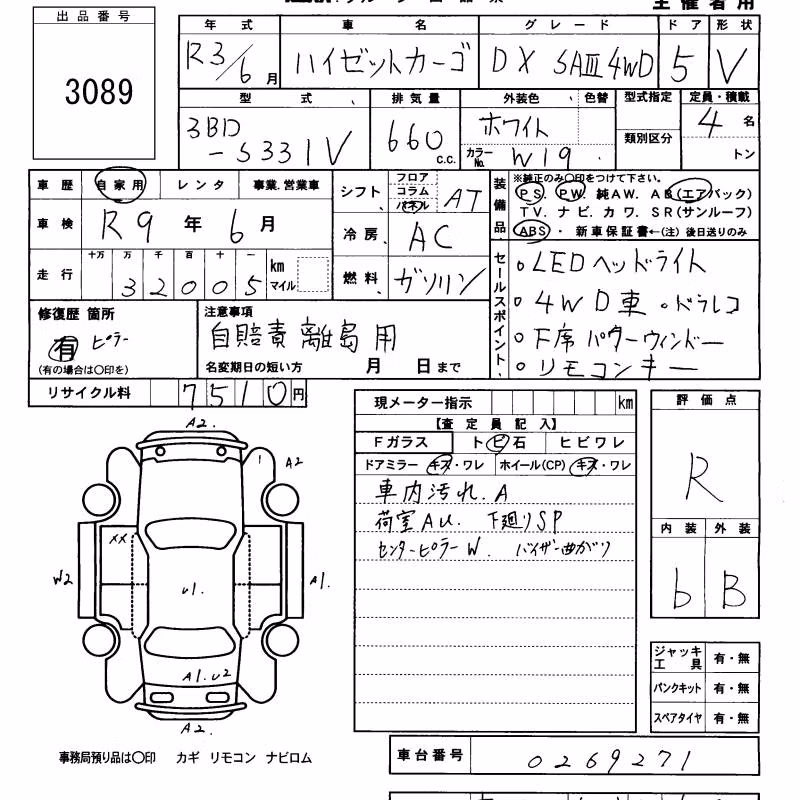 主催者用
出品番号
3089
年式 車名 グレード ドア 形状
R3/6月 ハイゼットカーゴ DX SAⅢ 4WD 5 V
型式 排気量 外装色 色替 型式指定 定員・積載
3BD-S331V 660 c.c. ホワイト カラーNo. W19 類別区分 4名 トン
車歴 自家用 レンタ 事業.営業車
車検 R9年6月
走行 十万 万 千 百 十 一 km マイル
32005
シフト フロア コラム パネル AT
冷房 AC
燃料 ガソリン
装備品 ※純正のみ○印をつけて下さい。
PS. PW. 純AW. AB(エアバック)
TV. ナビ. カワ. SR(サンルーフ)
ABS ・ 新車保証書←(注)後日送りのみ
セールスポイント
○LEDヘッドライト
○4WD車 ○ドラレコ
○F席パワーウィンドー
○リモコンキー
修復歴 箇所
有 ピラー
(有の場合は○印を)
注意事項
自賠責離島用
名変期日の短い方 月 日まで
リサイクル料 7510円
現メーター指示 km
【査定員記入】
Fガラス ト ビ 石 ヒビワレ
ドアミラー キズ・ワレ ホイール(CP) キズ・ワレ
車内汚れ.A
荷室AU. 下廻りSP
センターピラーW. バイザー曲がり
評価点
R
内装 外装
b B
A2.
1 A2
XX
W2 U1. A1.
A1.U2
A2.
ジャッキ工具 有・無
パンクキット 有・無
スペアタイヤ 有・無
事務局預り品は○印 カギ リモコン ナビロム
車台番号 0269271